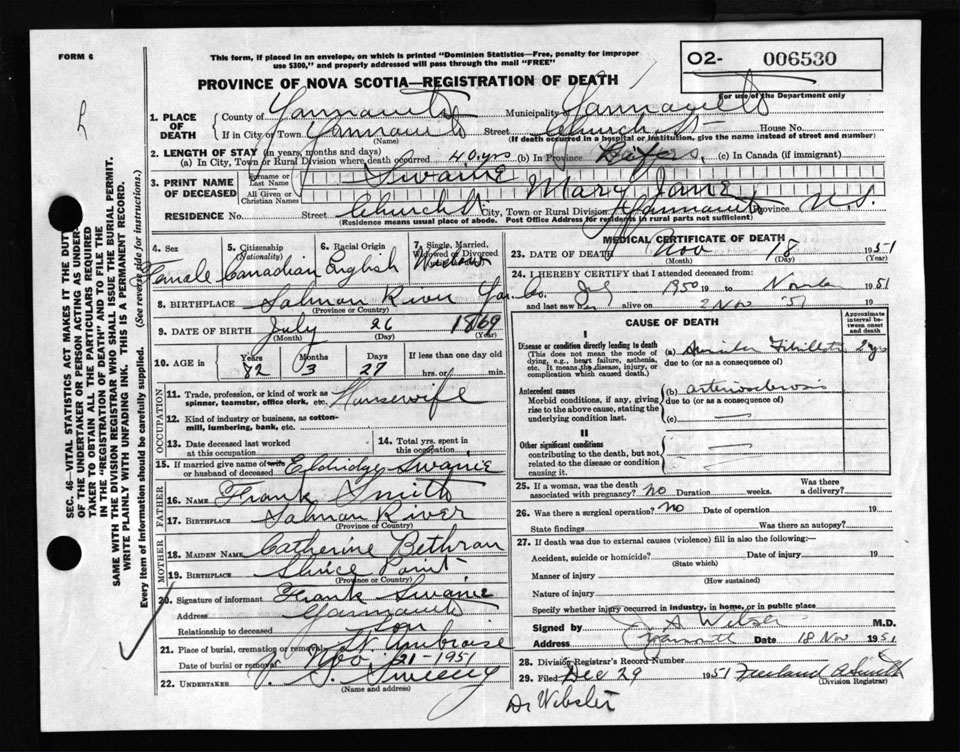 FORM 6
This form, if placed in an envelope, on which is printed "Dominion Statistics—Free, penalty for improper
use $300," and properly addressed will pass through the mail "FREE"
O2- 006530
For use of the Department only
PROVINCE OF NOVA SCOTIA—REGISTRATION OF DEATH
R
SEC. 46—VITAL STATISTICS ACT MAKES IT THE DUTY
OF THE UNDERTAKER OR PERSON ACTING AS UNDER-
TAKER TO OBTAIN ALL THE PARTICULARS REQUIRED
IN THE "REGISTRATION OF DEATH" AND TO FILE THE
SAME WITH THE DIVISION REGISTRAR WHO SHALL ISSUE THE BURIAL PERMIT.
WRITE PLAINLY WITH UNFADING INK. THIS IS A PERMANENT RECORD.
Every item of information should be carefully supplied. (See reverse side for instructions.)
1. PLACE OF DEATH County of Yarmouth Municipality of Yarmouth
If in City or Town Yarmouth (Name) Street Church St House No.
(If death occurred in a hospital or institution, give the name instead of street and number)
2. LENGTH OF STAY (in years, months and days)
(a) In City, Town or Rural Division where death occurred 40 yrs (b) In Province Lifers. (c) In Canada (if immigrant)
3. PRINT NAME OF DECEASED Surname or Last Name Swaine
All Given or Christian Names Mary Jane
RESIDENCE No. Street Church St. City, Town or Rural Division Yarmouth Province N.S.
(Residence means usual place of abode. Post Office Address for residents in rural parts not sufficient)
4. Sex Female
5. Citizenship (Nationality) Canadian
6. Racial Origin English
7. Single, Married, Widowed or Divorced Widow
8. BIRTHPLACE Salmon River Yar. Co.
(Province or Country)
9. DATE OF BIRTH July (Month) 26 (Day) 1869 (Year)
10. AGE in Years 82 Months 3 Days 27 If less than one day old hrs. or min.
11. Trade, profession, or kind of work as spinner, teamster, office clerk, etc. Housewife
12. Kind of industry or business, as cotton-mill, lumbering, bank, etc.
13. Date deceased last worked at this occupation
14. Total yrs. spent in this occupation
15. If married give name of wife or husband of deceased Eldridge Swaine
FATHER
16. NAME Frank Smith
17. BIRTHPLACE Salmon River
(Province or Country)
MOTHER
18. MAIDEN NAME Catherine Bethran
19. BIRTHPLACE Sluice Point
(Province or Country)
20. Signature of informant Frank Swaine
Address Yarmouth
Relationship to deceased Son
21. Place of burial, cremation or removal St. Ambroise
Date of burial or removal Nov. 21-1951
22. UNDERTAKER Sweeny
(Name and address)
MEDICAL CERTIFICATE OF DEATH
23. DATE OF DEATH Nov (Month) 18 (Day) 1951 (Year)
24. I HEREBY CERTIFY that I attended deceased from:
July 1950 to Nov 1951
and last saw her alive on 2 Nov '51
CAUSE OF DEATH
Approximate interval between onset and death
I
Disease or condition directly leading to death
(This does not mean the mode of dying, e.g., heart failure, asthenia, etc. It means the disease, injury, or complication which caused death.)
(a) 2 yrs
due to (or as a consequence of)
Antecedent causes
Morbid conditions, if any, giving rise to the above cause, stating the underlying condition last.
(b) arteriosclerosis
due to (or as a consequence of)
(c)
II
Other significant conditions
contributing to the death, but not related to the disease or condition causing it.
25. If a woman, was the death associated with pregnancy? no Duration weeks. Was there a delivery?
26. Was there a surgical operation? no Date of operation 19
State findings Was there an autopsy?
27. If death was due to external causes (violence) fill in also the following:
Accident, suicide or homicide? (State which) Date of injury 19
Manner of injury (How sustained)
Nature of injury
Specify whether injury occurred in industry, in home, or in public place
Signed by A. Webster M.D.
Address Yarmouth Date 18 Nov 1951
28. Division Registrar's Record Number
29. Filed Dec 29 1951
(Division Registrar)
Dr Webster